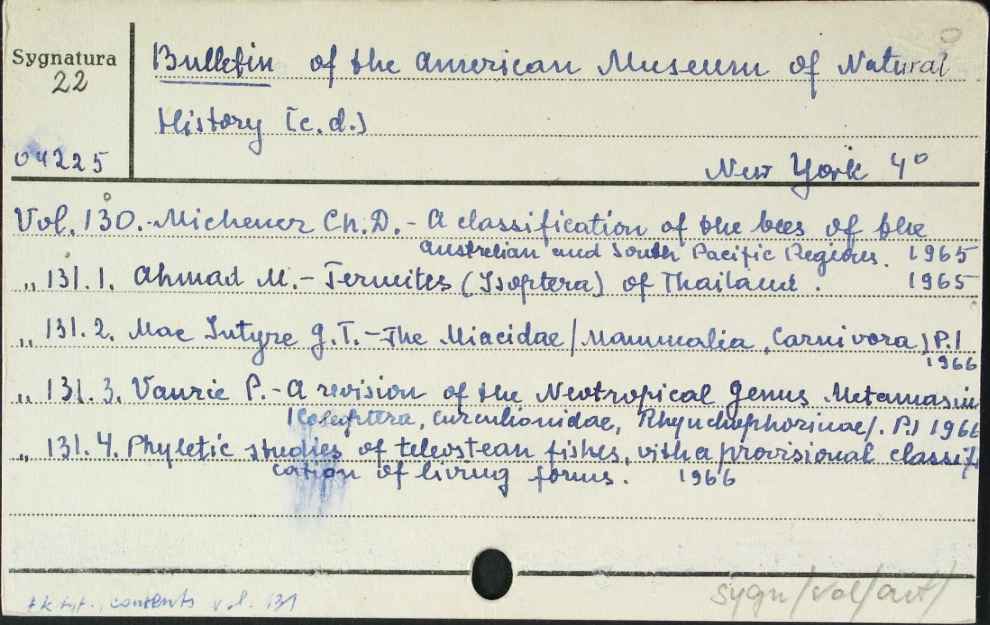 Sygnatura
22
04225
Bullefin of the American Museum of Natural
History [c.d.]
New York 4°
Vol. 130.-Michener Ch.D.- A classification of the bees of the
australian and South Pacific Regions. 1965
„ 131.1. Ahmad M.- Termites (Isoptera) of Thailand. 1965
„ 131.2. Mac Intyre G.T.-The Miacidae /Mammalia, Carnivora/ P.1
1966
„ 131.3. Vaurie P.-A revision of the Neotropical Genus Metamasiu
/Coleoptera, Curculionidae, Rhynchophorinae/. P.1 1966
„ 131.4. Phyletic studies of teleostean fishes, with a provisional classifi
cation of living forms. 1966
contents vol. 131
sygn/vol/aut/